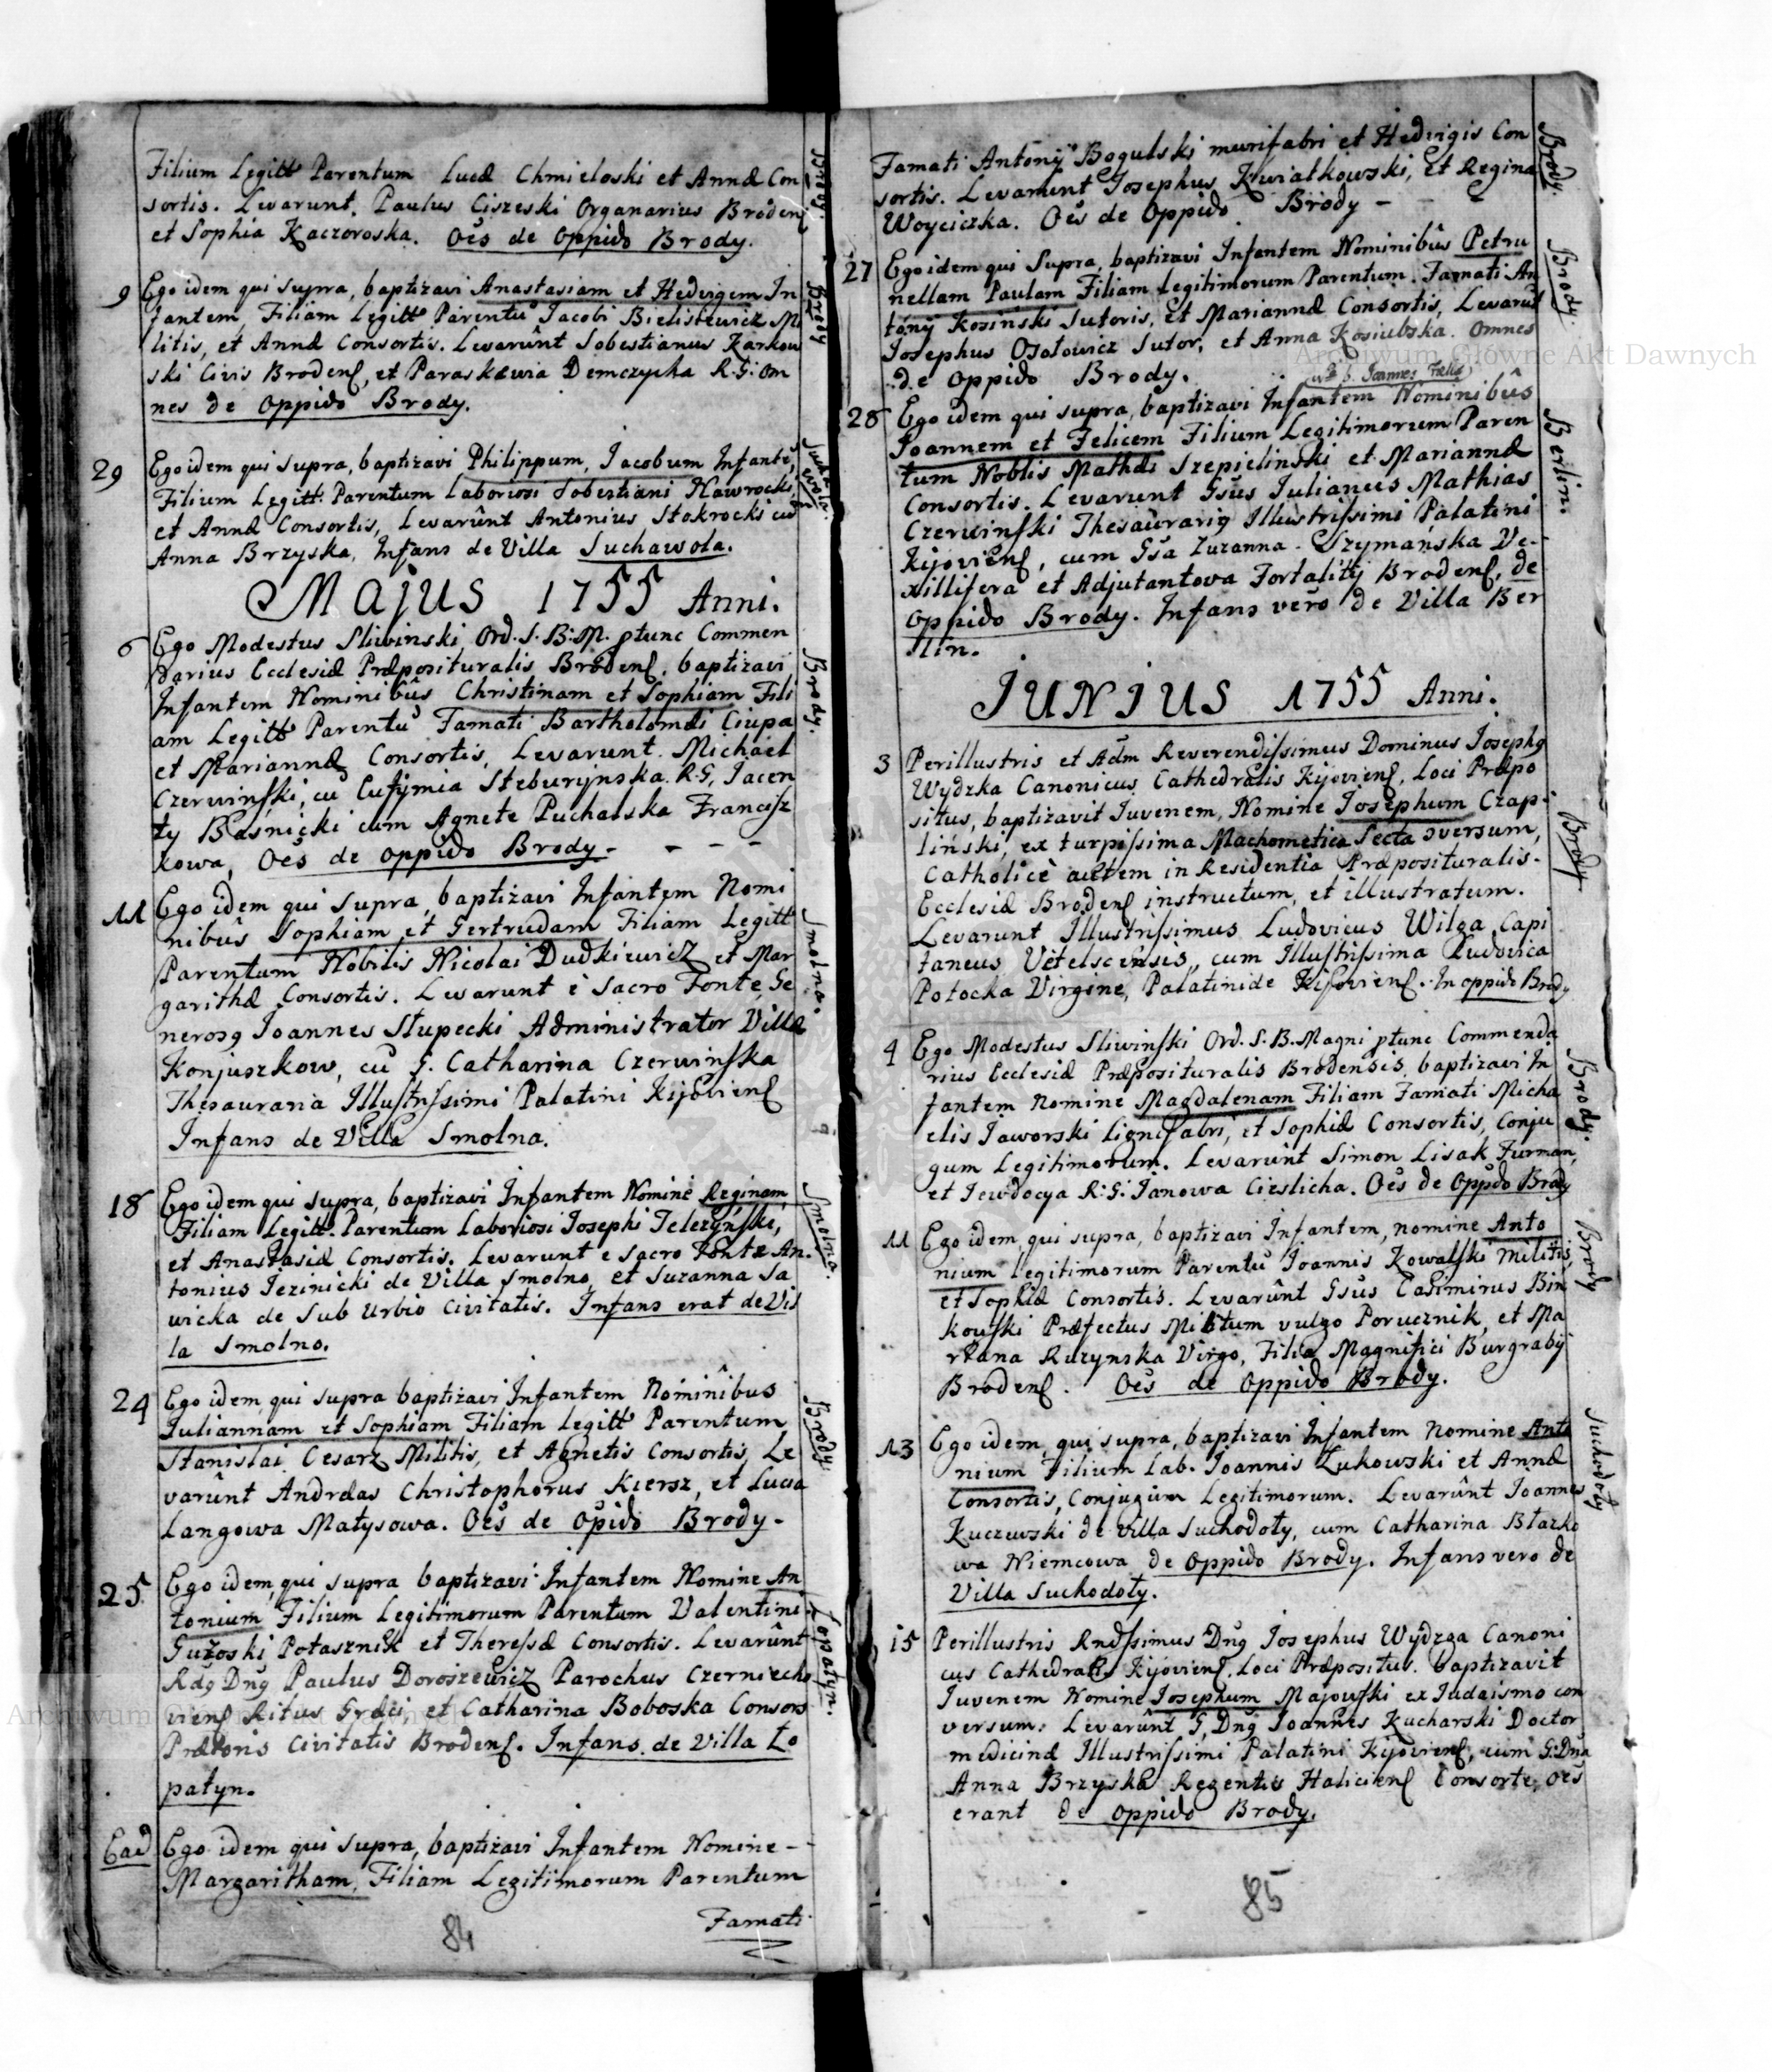 Filium Legitt Parentum Lucæ Chmieloski et Annæ Con
sortis. Levarunt, Paulus Ciszeski Organarius Brodens
et Sophia Kaczoroska. Oẽs de Oppido Brody.
Brody.
9 Ego idem qui supra, baptizavi Anastasiam et Hedvigem In
fantem, Filiam Legitt Parentũ Jacobi Bielistewicz Mi
litis, et Annæ Consortis. Levarûnt Sobestianus Karkow
ski Civis Brodens, et Paraskewia Demczycha R.G: Om
nes de Oppido Brody.
Brody
29 Ego idem qui supra, baptizavi Philippum, Jacobum Infantẽ,
Filium Legitt: Parentum Laboriosi Sobestiani Nawrocki,
et Annæ Consortis, Levarûnt Antonius Stokrocki cũ
Anna Brzyska, Infans de Villa Suchawola.
Sucha
wola.
MAJUS 1755 Anni.
6 Ego Modestus Sliwinski, Ord. S. B: M. ptunc Commen
darius Ecclesiæ Præposituralis Brodens, baptizavi
Infantem Nominibûs Christinam et Sophiam Fili
am Legitt Parentũ Famati Bartholomæi Ciupa
et Mariannæ Consortis, Levarunt Michael
Czerwinski, cũ Eufymia Steburynska R.G, Jacen
ty Baśnicki cum Agnete Puchalska Francisz
kowa, Oẽs de Oppido Brody - - - -
Brody.
11 Ego idem qui supra, baptizavi Infantem Nomi
nibûs Sophiam et Gertrudam Filiam Legitt
Parentum Nobilis Nicolai Dudkiewicz et Mar
garithæ Consortis. Levarunt è Sacro Fonte, Ge
neros9 Joannes Słupecki Administrator Villæ
Konjuszkow, cũ G. Catharina Czerwinska
Thesauraria Illustrissimi Palatini Kijoviens
Infans de Villa Smolna.
Smolna.
18 Ego idem qui supra, baptizavi Infantem Nomine Reginam,
Filiam Legitt. Parentum Laboriosi Josephi Teleżyński,
et Anastasiæ Consortis. Levarunt e Sacro Fonte An.
tonius Jezinicki de Villa Smolno, et Suzanna Sa
wicka de Sub Urbio Civitatis. Infans erat de Vil
la Smolno.
Smolna.
24 Ego idem qui supra baptizavi Infantem Nominîbus
Juliannam et Sophiam Filiam Legitt Parentum
Stanislai Cesarz Militis, et Agnetis Consortis, Le
varûnt Andreas Christophorus Kiersz, et Lucia
Langowa Matysowa. Oẽs de Opido Brody -
Brody.
25 Ego idem, qui supra baptizavi Infantem Nomine An
tonium Filium Legitimorum Parentum Valentini
Gużoski Potasznik et Theressæ Consortis. Levarûnt
Rd9 Dn9 Paulus Doroszewicz Parochus Czerniecho
viens Ritus Græci, et Catharina Boboska Consors
Prætoris Civitatis Brodens. Infans de Villa Ło
patyn.
Łopatyn.
Ead Ego idem qui supra, baptizavi Infantem Nomine -
Margaritham, Filiam Legitimorum Parentum
Famati
84
Famati Antonÿ Bogulski murifabri et Hedvigis Con
sortis. Levarunt Josephus Kwiatkowski, et Regina
Woyciczka. Oẽs de Oppido Brody -
Brody.
27 Ego idem qui Supra, baptizavi Infantem Nominibûs Petru
nellam Paulam Filiam Legitimorum Parentum Famati An
tonÿ Kosiński Sutoris, et Mariannæ Consortis, Levarũt
Josephus Osatowicz Sutor, et Anna Kosiubska. Omnes
de Oppido Brody.
Brody.
28 Ego idem qui supra, baptizavi Infantem Nominibûs
Joannem et Felicem Filium Legitimorum Paren
tum Noblis Mathæi Szepielinski et Mariannæ
Consortis. Levarunt Gsũs Julianus Mathias
Czerwinski Thesaurari9 Illustrissimi Palatini
Kijoviens, cum Gsa Zuzanna Szymańska Ve-
xillifera et Adjutantowa Fortalitÿ Brodens, de
Oppido Brody. Infans vero de Villa Ber
llin.
Berlin.
JUNIUS 1755 Anni.
3 Perillustris et Adm Reverendissimus Dominus Joseph9
Wydzka Canonicus Cathedralis Kijoviens, Loci Præpo
situs, baptizavit Juvenem, Nomine Josephum Czap-
liński, ex turpissima Machometica Secta ɔversum,
Catholicè autem in Residentia Præposituralis
Ecclesiæ Brodens instructum, et illustratum.
Levarunt Illustrissimus Ludovicus Wilga Capi
taneus Vetelscensis, cum Illustrissima Ludovica
Potocka Virgine, Palatinide Kijoviens. In oppido Brody
Brody
4 Ego Modestus Sliwinski Ord. S. B. Magni ptunc Commenda
rius Ecclesiæ Præposituralis Brodensis, baptizavi In
fantem Nomine Magdalenam Filiam Famati Micha
elis Jaworski Lignifabri, et Sophiæ Consortis, Conju
gum Legitimorum. Levarûnt Simon Lisak Furman,
et Jewdocya R: G: Janowa Cieslicha. Oẽs de Oppido Brody
Brody.
11 Ego idem, qui supra, baptizavi Infantem, nomine Anto
nium Legitimorum Parentũ Joannis Kowalski Militis,
et Sophiæ Consortis. Levarûnt Gsũs Casimirus Bin
kowski Præfectus Militum vulgo Porucznik, et Ma
ryana Ruzynska Virgo, Filia Magnifici Burgrabÿ
Brodens. Oẽs de Oppido Brody.
Brody
13 Ego idem, qui supra, baptizavi Infantem Nomine Anto
nium Filium Lab. Joannis Łukowski et Annæ
Consortis, Conjugum Legitimorum. Levarûnt Joannes
Kuczewski de Villa Suchodoły, cum Catharina Błazko
wa Niemcowa de Oppido Brody. Infans vero de
Villa Suchodoły.
Suchodoły
15 Perillustris Rndssimus Dn9 Josephus Wydzga Canoni
cus Cathedralis Kijoviens, Loci Præpositus. baptizavit
Juvenem Nomine Josephum Majowski ex Judaismo con
versum: Levarûnt G, Dn9 Joannes Kucharski Doctor
medicinæ Illustrissimi Palatini Kijoviens, cum G: Dna
Anna Brzyska Regentis Haliciens Consorte, oẽs
erant de Oppido Brody.
85
Archiwum Główne Akt Dawnych